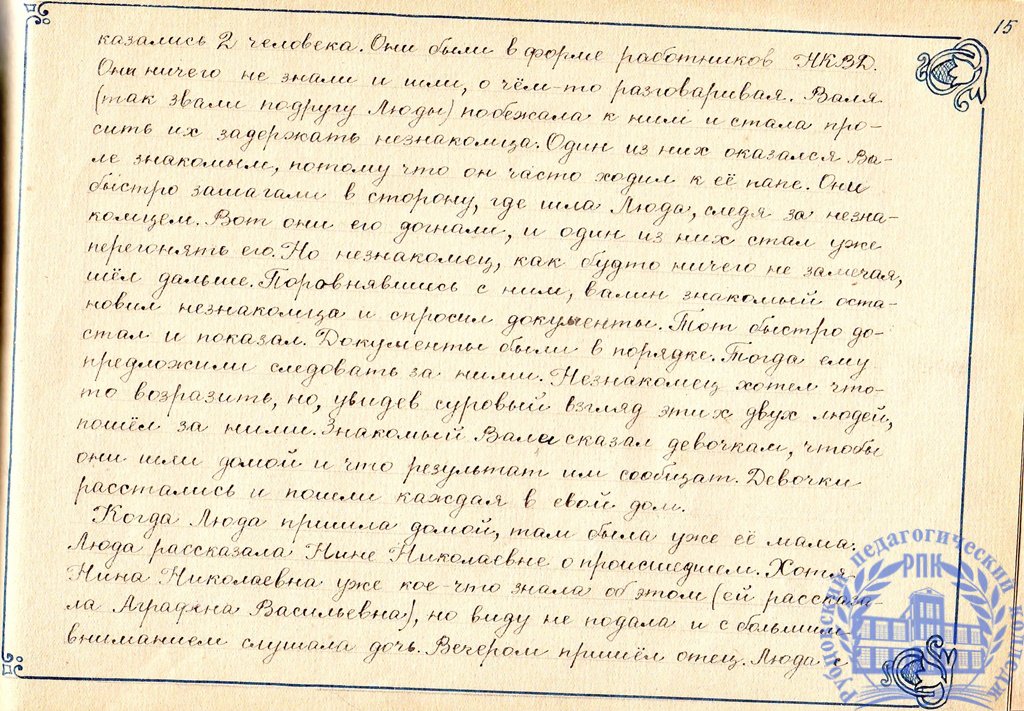 15
казались 2 человека. Они были в форме работников НКВД.
Они ничего не знали и шли, о чём-то разговаривая. Валя
(так звали подругу Люды) побежала к ним и стала про-
сить их задержать незнакомца. Один из них оказался Ва-
ле знакомым, потому что он часто ходил к её папе. Они
быстро зашагали в сторону, где шла Люда, следя за незна-
комцем. Вот они его догнали, и один из них стал уже
перегонять его. Но незнакомец, как будто ничего не замечая,
шёл дальше. Поровнявшись с ним, валин знакомый оста-
новил незнакомца и спросил документы. Тот быстро до-
стал и показал. Документы были в порядке. Тогда ему
предложили следовать за ними. Незнакомец хотел что-
то возразить, но, увидев суровый взгляд этих двух людей,
пошёл за ними. Знакомый Вали сказал девочкам, чтобы
они шли домой и что результат им сообщат. Девочки
расстались и пошли каждая в свой дом.
Когда Люда пришла домой, там была уже её мама.
Люда рассказала Нине Николаевне о происшедшем. Хотя
Нина Николаевна уже кое-что знала об этом (ей рассказа-
ла Аграфена Васильевна), но виду не подала и с большим
вниманием слушала дочь. Вечером пришёл отец. Люда с
Рубцовский педагогический колледж
РПК